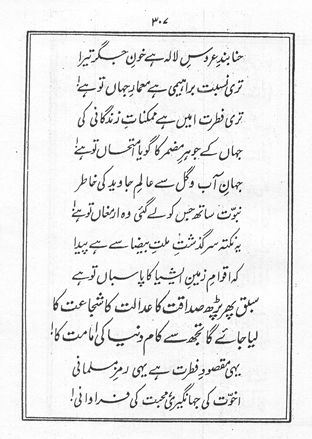 ۳۰۷
حنا بندِ عروسِ لالہ ہے خونِ جگر تیرا
تری نسبت براہیمی ہے معمارِ جہاں تو ہے!
تری فطرت امیں ہے ممکناتِ زندگانی کی
جہاں کے جوہرِ مضمر کا گویا امتحاں تو ہے!
جہانِ آب و گل سے عالمِ جاوید کی خاطر
نبوّت ساتھ جس کو لے گئی وہ ارمغاں تو ہے!
یہ نکتہ سرگذشتِ ملّتِ بیضا سے ہے پیدا
کہ اقوامِ زمینِ ایشیا کا پاسباں تو ہے
سبق پھر پڑھ صداقت کا عدالت کا شجاعت کا
لیا جائے گا تجھ سے کام دنیا کی امامت کا!
یہی مقصودِ فطرت ہے یہی رمزِ مسلمانی
اخوّت کی جہانگیری محبت کی فراوانی!